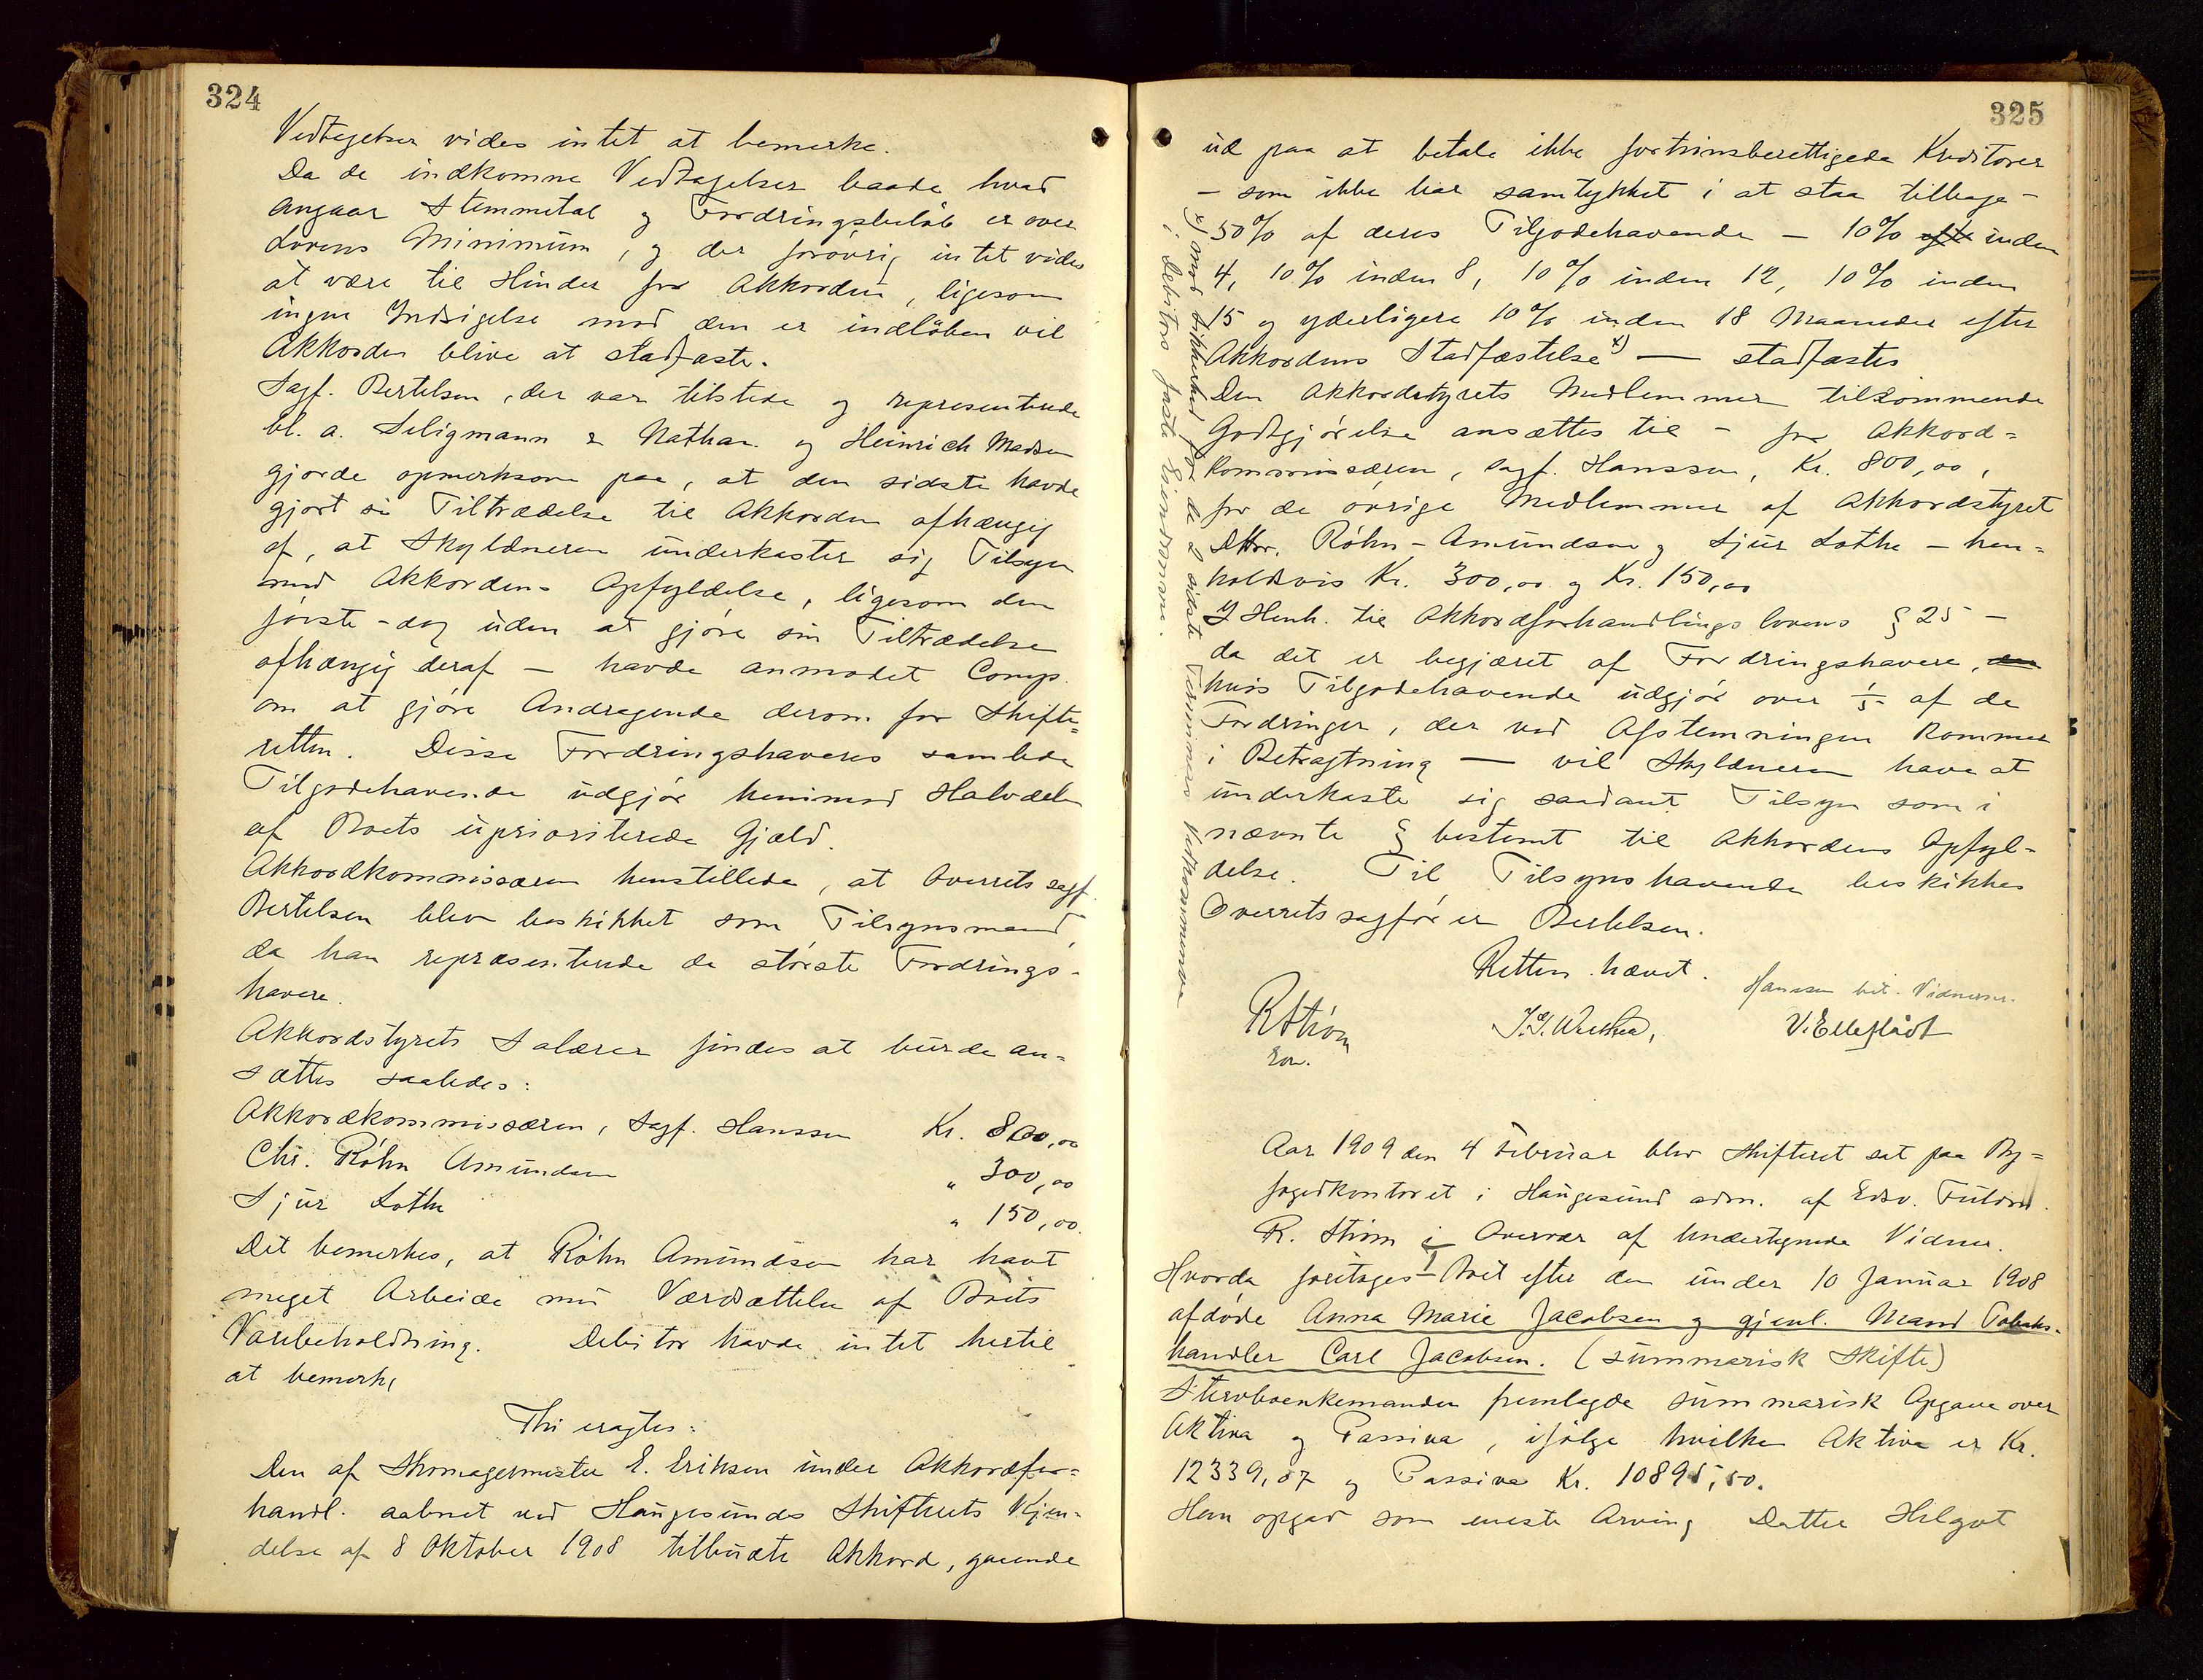 324
Vedtagelser vides intet at bemerke.
Da de indkomne Vedtagelser baade hvad
angaar Stemmetal og Fordringsbeløb er over
Lovens Minimum, og der forøvrig intet vides
at være til Hinder for Akkorden, ligesom
ingen Indsigelse mod den er indløben vil
Akkorden blive at stadfæste.
Sagf. Bertelsen, der var tilstede og representerede
bl. a. Seligmann & Nathan og Heinrich Madsen
gjorde opmerksom paa, at den sidste havde
gjort sin Tiltrædelse til Akkorden afhængig
af, at Skyldneren underkaster sig Tilsyn
med Akkordens Opfyldelse, ligesom den
første - dog uden at gjøre sin Tiltrædelse
afhængig deraf - havde anmodet Comp.
om at gjøre Andragende derom for Skifte=
retten. Disse Fordringshaveres samlede
Tilgodehavende udgjør henimod Halvdelen
af Boets uprioriterede Gjæld.
Akkordkommissæren henstillede, at Overretssagf.
Bertelsen blev beskikket som Tilsynsmand,
da han repræsenterede de største Fordrings-
havere.
Akkordstyrets Salærer findes at burde an=
sættes saaledes:
Akkordkommissæren, Sagf. Hanssen Kr. 800,00
Chr. Röhn Amundsen " 300,00
Sjur Lothe " 150,00.
Det bemerkes, at Röhn Amundsen har havt
meget Arbeide med Værdsættelse af Boets
Varebeholdning. Debitor havde intet hertil
at bemerke
Thi eragtes:
Den af Skomagermester E. Eriksen under Akkordfor=
handl. aabnet ved Haugesunds Skifterets Kjen-
delse af 8 Oktober 1908 tilbudte Akkord, gaaende
325
ud paa at betale ikke fortrinsberettigede Kreditorer
- som ikke har samtykket i at staa tilbage -
50% af deres Tilgodehavende - 10% efter inden
4, 10% inden 8, 10% inden 12, 10% inden
15 og yderligere 10% inden 18 Maaneder efter
Akkordens Stadfæstelse x) - stadfæstes
Den Akkordstyrets Medlemmer tilkommende
Godtgjørelse ansættes til - for Akkord=
kommissæren, sagf. Hanssen, Kr. 800,00,
for de øvrige Medlemmer af Akkordstyret
DHrr. Röhn-Amundsen og Sjur Lothe - hen=
holdsvis Kr. 300,00 og Kr. 150,00
I Henh. til Akkordforhandlingslovens § 25 -
da det er begjæret af Fordringshavere,
hvis Tilgodehavende udgjør over 1/5 af de
Fordringer, der ved Afstemningen kommer
i Betragtning - vil Skyldneren have at
underkaste sig saadant Tilsyn som i
nævnte § bestemt til Akkordens Opfyl-
delse. Til Tilsynshavende beskikkes
Overretssagfører Bertelsen.
x) mod Sikkerhed for de 2 sidste Terminers Vedkommende
i Debitors faste Eiendomme.
Retten hævet.
Hanssen bet. Vidnerne.
R Strøm
Edv.
V. Ellefladt
Aar 1909 den 4 Februar blev Skifteret sat paa By=
fogedkontoret i Haugesund adm. af Edsv. Fuldm.
R. Strøm i Overvær af Undertegnede Vidner.
Hvorda foretoges: Boet efter den under 10 Januar 1908
afdøde Anna Marie Jacobsen og gjenl. Mand Tobaks-
handler Carl Jacobsen. (summarisk Skifte)
Stervboenkemanden fremlagde summarisk Opgave over
Aktiva og Passiva, ifølge hvilken Aktiva er Kr.
12339,07 og Passiva Kr. 10895,50.
Han opgav som eneste Arving Datter Helga